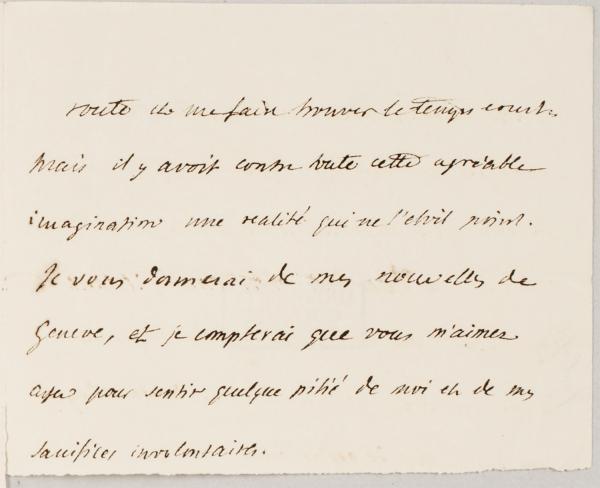 route et me faire trouver le temps court.
mais il y avoit contre toute cette agréable
imagination une realité qui ne l'etoit point.
Je vous donnerai de mes nouvelles de
Geneve, et je compterai que vous m'aimez
assez pour sentir quelque pitié de moi et de mes
sacrifices involontaires.